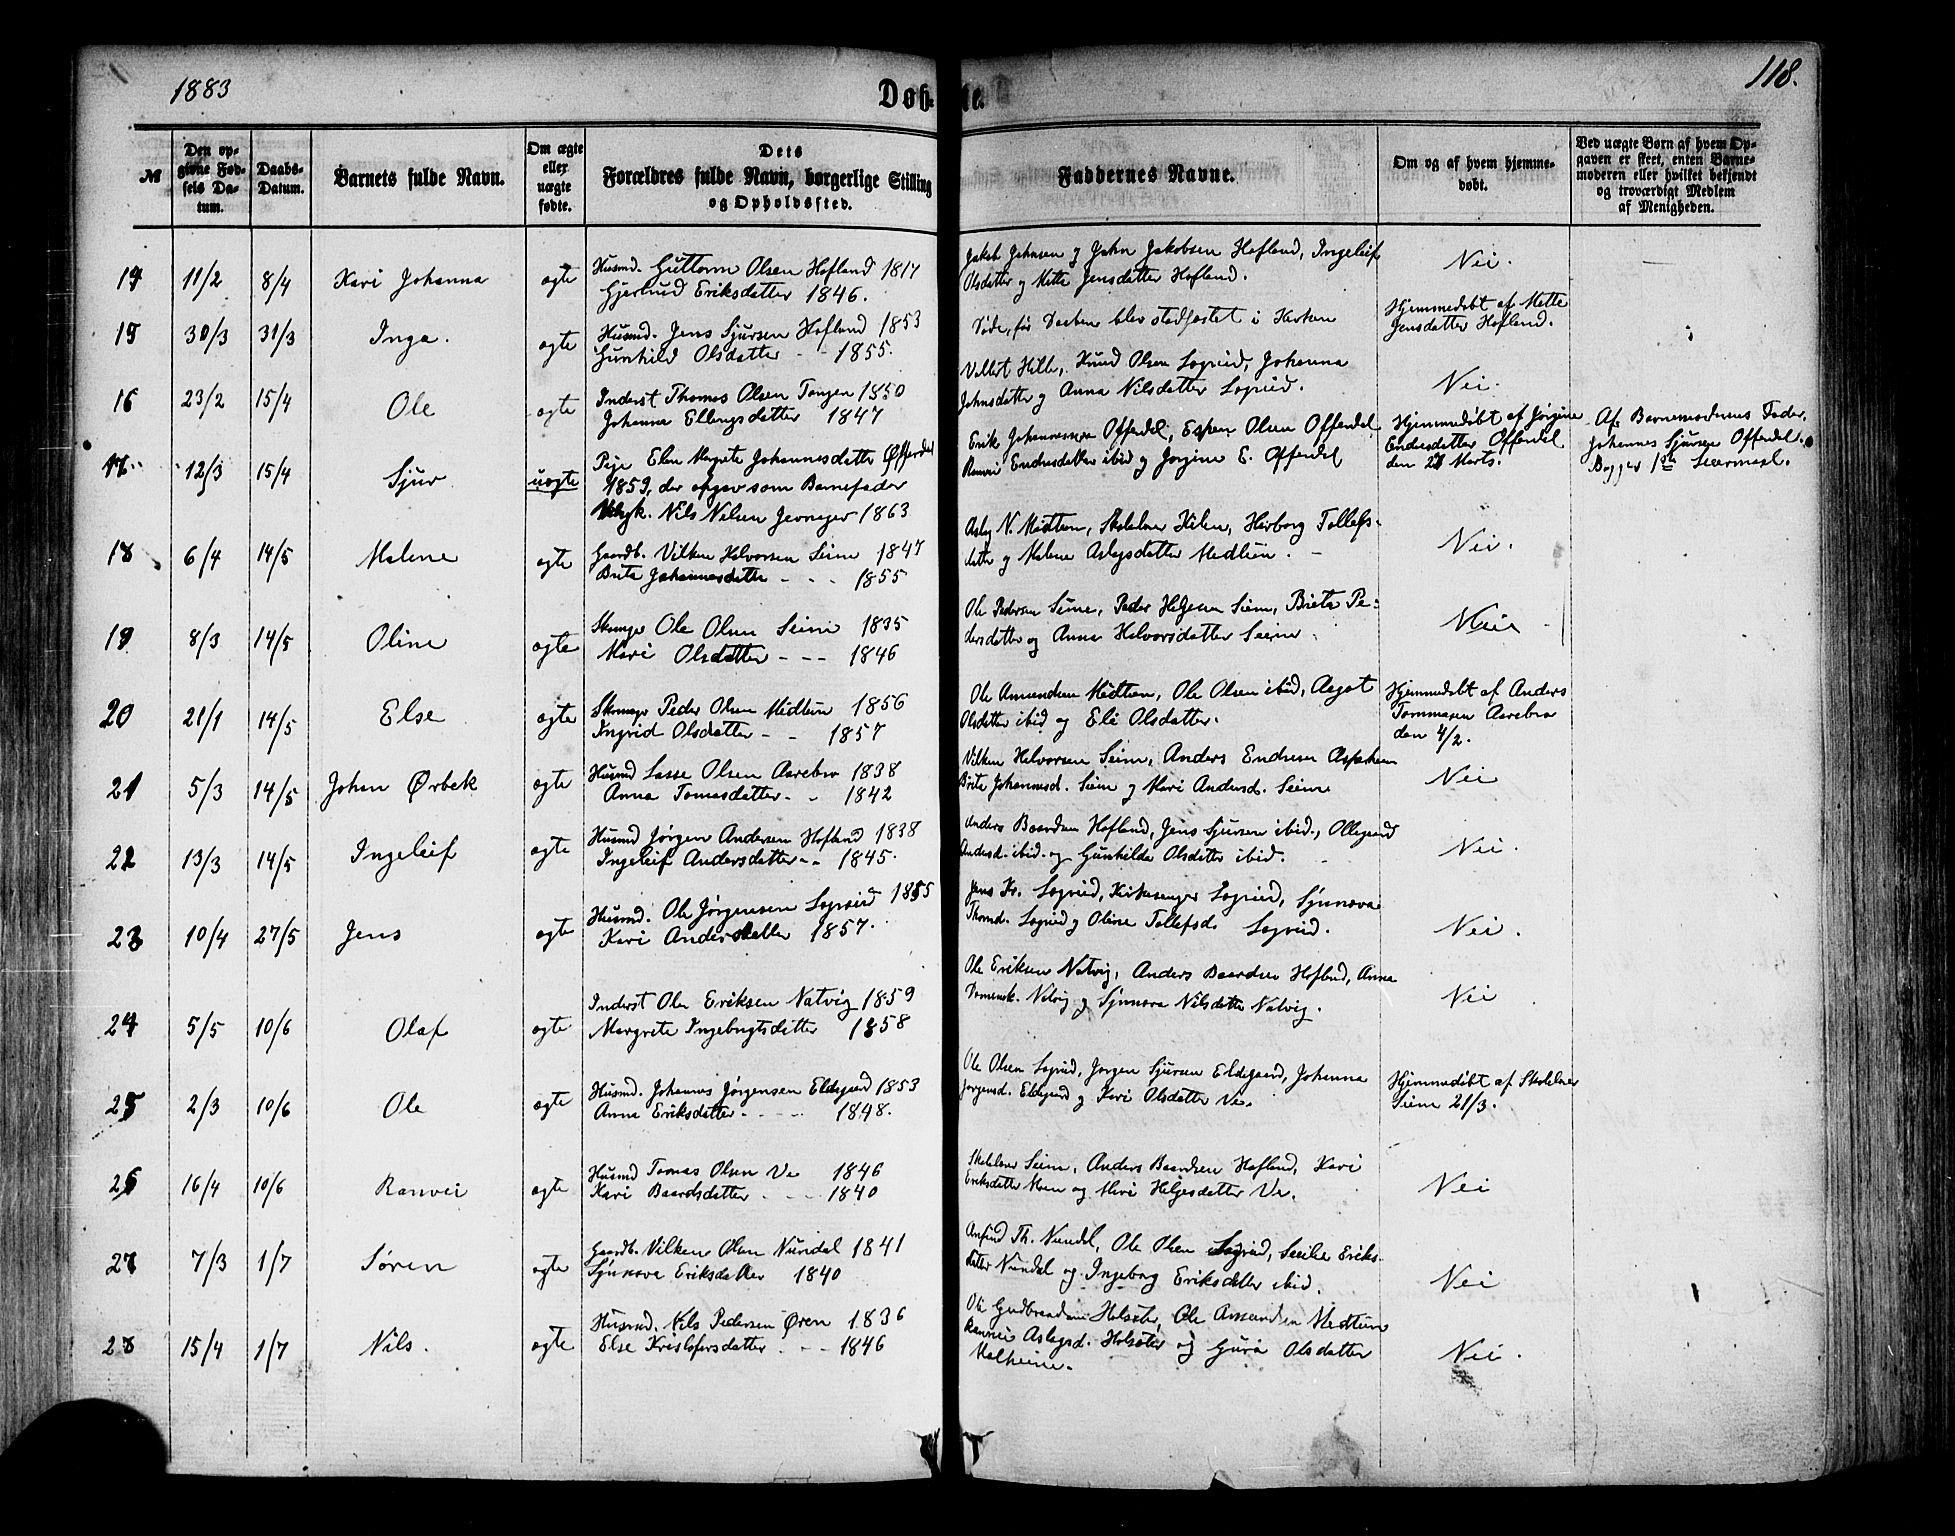 1883
Døb- te.
118.
№
Den op-
givne Fød-
sels Da-
tum.
Daabs-
Datum.
Barnets fulde Navn.
Om ægte
eller
uægte
fødte.
Dets
Forældres fulde Navn, borgerlige Stilling
og Opholdssted.
Faddernes Navne.
Om og af hvem hjemme-
døbt.
Ved uægte Børn af hvem Op-
gaven er skeet, enten Barne-
moderen eller hvilket bekjendt
og troværdigt Medlem
af Menigheden.
14 11/2 8/4 Kari Johanna ægte
Husmd. Guttorm Olsen Hofland 1817
Gjertrud Eriksdatter 1846.
Jakob Johnsen og John Jakobsen Hofland, Ingeleif
Olsdatter og Mette Jensdatter Hofland.
Nei.
15 30/3 31/3 Inga. ægte
Husmd. Jens Sjursen Hofland 1853
Gunhild Olsdatter - - 1855.
Døde, før Daaben blev stadfæstet i Kirken
Hjemmedøbt af Mette
Jensdatter Hofland.
16 23/2 15/4 Ole ægte
Inderst Thomas Olsen Tangen 1850
Johanna Ellingsdatter 1847
Hille, Knud Olsen Sogreid, Johanna
Johnsdatter og Anna Nilsdatter Sogreid.
Nei.
17 12/3 15/4 Sjur uægte
Pige Elen Margrete Johannesdatter Øfferdal
1859, der opgav som Barnefader
Ungk. Nils Nilsen 1863
Erik Johannessen Offerdal, Espen Olsen Offerdal
Ranvei Endresdatter ibid og Jørgine E. Offerdal
Hjemmedøbt af Jørgine
Endresdatter Offerdal
den 21 Marts.
Af Barnemoderens Fader,
Johannes Sjursen Offerdal.
18 6/4 14/5 Malene ægte
Gaardb. Vilken Halvorsen Seim 1847
Brita Johannesdatter - - - 1855
Aslag N. Midtun, Skolelærer Hilen, Herborg Tollefs-
datter og Malene Aslagsdatter Medtun. -
Nei.
19 8/3 14/5 Oline ægte
Skomager Ole Olsen Seim 1835
Mari Olsdatter - - - 1846
Ole Pedersen Seim, Peder Helgesen Seim, Brita Pe-
dersdatter og Anna Halvorsdatter Seim.
Nei
20 21/1 14/5 Else ægte
Skomager Peder Olsen Midtun 1856
Ingrid Olsdatter - - 1857
Ole Amundsen Midtun, Ole Olsen ibid, Aagot
Olsdatter ibid og Eli Olsdatter.
Hjemmedøbt af Anders
Tommasen Aarebro
den 4/2.
21 5/3 14/5 Johan Ørbek ægte
Husmd Lasse Olsen Aarebro 1838
Anna Tomasdatter - - 1842
Vilken Halvorsen Seim, Anders Endresen
Brita Johannesd. Seim og Mari Andersd. Seim
Nei
22 13/3 14/5 Ingeleif ægte
Husmd Jørgen Andersen Hofland 1838
Ingeleif Andersdatter - - 1845.
Anders Baardsen Hofland, Jens Sjursen ibid., Ollegaard
Andersd. ibid. og Gunhilda Olsdatter ibid.
Nei.
23 10/4 27/5 Jens ægte
Husmd. Ole Jørgensen Sogreid 1855
Kari Andersdatter 1857.
Jens Kr. Sogreid, Kirkesanger Sogreid, Synnøva
Thomd. Sogreid og Oline Tollefsd. Sogreid.
Nei.
24 5/5 10/6 Olaf ægte
Inderst Ole Eriksen Natvig 1859
Margrete Ingebrigtsdatter 1858
Ole Eriksen Natvig, Anders Baardsen Hofland, Anna
Natvig og Synnøva Nilsdatter Natvig.
Nei
25 2/3 10/6 Ole ægte
Husmd. Johannes Jørgensen Eldegard 1853
Anna Eriksdatter - - - - 1848.
Ole Olsen Sogreid, Jørgen Sjursen Eldegaard, Johanna
Jørgensd. Eldegaard og Kari Olsdatter Ve.
Hjemmedøbt af Skolelærer
Seim 21/3.
26 16/4 10/6 Ranvei ægte
Husmd Tomas Olsen Ve 1846
Kari Baardsdatter - - - 1840
Skolelærer Seim, Anders Baardsen Hofland, Kari
Eriksdatter Moen og Mari Helgesdatter Ve.
Nei
27 7/3 1/7 Søren ægte
Gaardb. Vilken Olsen Nundal 1841
Synnøva Eriksdatter 1840
Anfind Th. Nundal, Ole Olsen Sogreid, Secilie Eriks-
datter Nundal og Ingeborg Eriksdatter ibid.
Nei
28 15/4 1/7 Nils. ægte
Husmd. Nils Pedersen Øren 1836
Else Kristofersdatter - - - 1846
Ole Gudbrandsen Holsæter, Ole Amundsen Medtun
Ranvei Aslagsd. Holsæter og Guro Olsdatter
Malheim.
Nei.